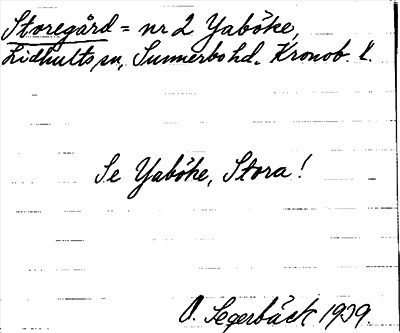 Storegård = nr 2 Yaböke,
Lidhults sn, Sunnerbo hd. Kronob. l.
Se Yaböke, Stora!
O. Segerbäck 1939.